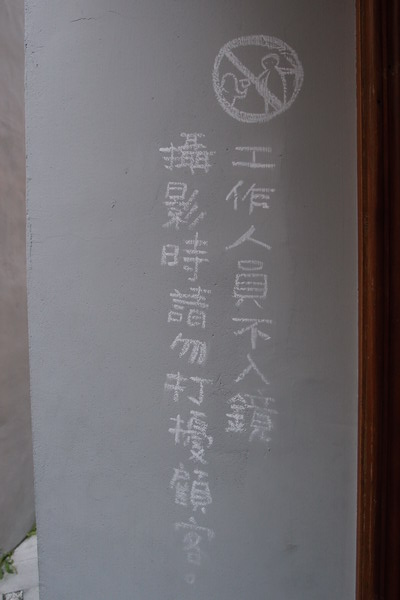 工作人員不入鏡
攝影時請勿打擾顧客。